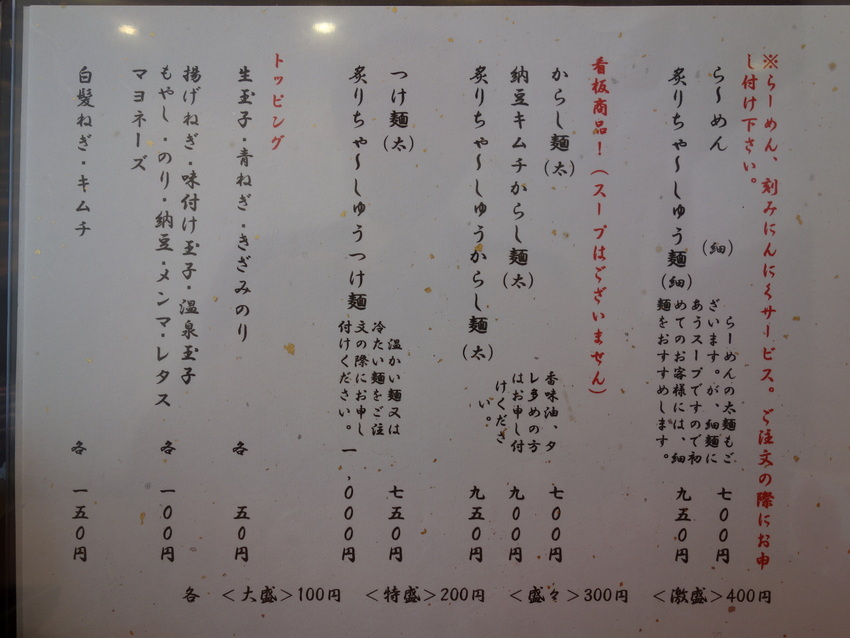 ※らーめん、刻みにんにくサービス。ご注文の際にお申
し付け下さい。
ら〜めん（細）七００円
らーめんの太麺もご
ざいます。が、細麺に
あうスープですので初
めてのお客様には、細
麺をおすすめします。
炙りちゃ〜しゅう麺（細）九五０円
看板商品！（スープはございません）
からし麺（太）七００円
香味油、タ
レ多めの方
はお申し付
けくださ
い。
納豆キムチからし麺（太）九００円
炙りちゃ〜しゅうからし麺（太）九五０円
つけ麺（太）七五０円
温かい麺又は
冷たい麺をご注
文の際にお申し
付けください。
炙りちゃ〜しゅうつけ麺一,０００円
トッピング
生玉子・青ねぎ・きざみのり 各 五０円
揚げねぎ・味付け玉子・温泉玉子
もやし・のり・納豆・メンマ・レタス
マヨネーズ 各 一００円
白髪ねぎ・キムチ 各 一五０円
各 ＜大盛＞100円 ＜特盛＞200円 ＜盛々＞300円 ＜激盛＞400円